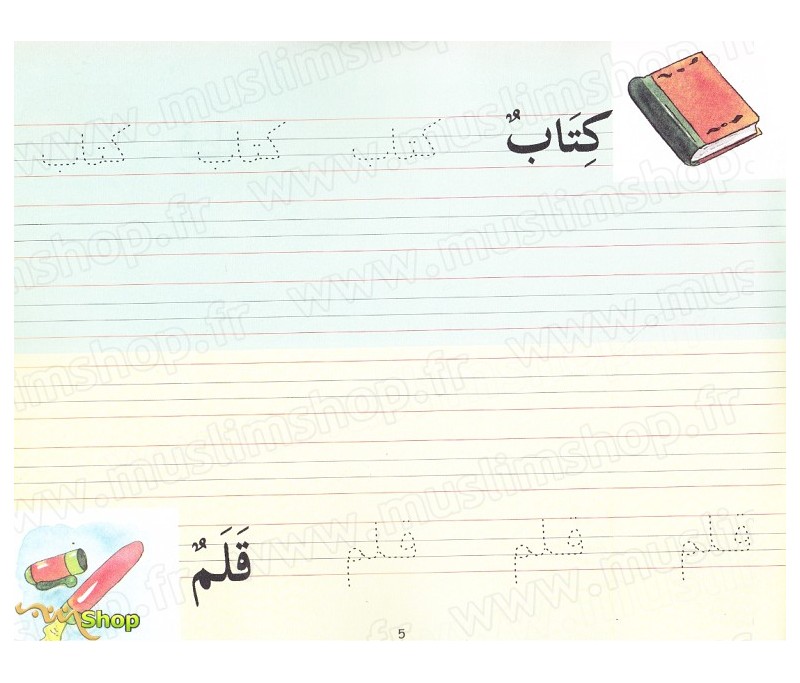 كِتَابٌ كتاب كتاب كتاب
قَلَمٌ قلم قلم قلم
Shop
5
www.muslimshop.fr